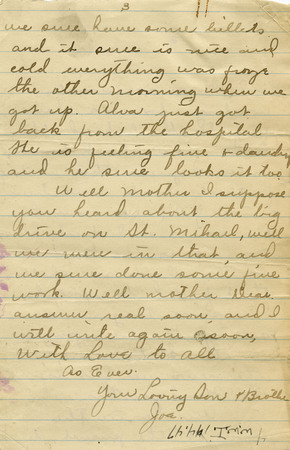 3
we sure have some billets
and it sure is nice and
cold everything was froze
the other morning when we
got up. Alva just got
back from the hospital
He is feeling fine & dandy
and he sure looks it too
Well Mother I suppose
you heard about the big
drive on St. Mihael, well
we were in that, and
we sure done some fine
work. Well mother Dear
answer real soon and I
will write again soon,
With Love to all
As Ever.
Your Loving Son & Brother
Joe.